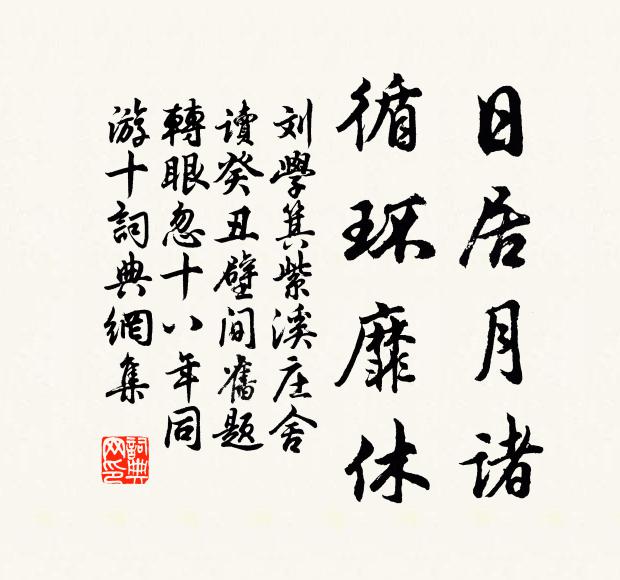 日居月诸
循环靡休
刘學箕紫溪庄舍
读癸丑壁间舊题
轉眼忽十八年同
游十詞典網集
詞典網印